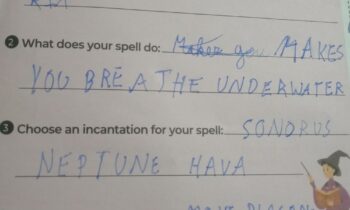 2 What does your spell do: MAKES
YOU BREATHE UNDERWATER
3 Choose an incantation for your spell: SONORUS
NEPTUNE HAVA